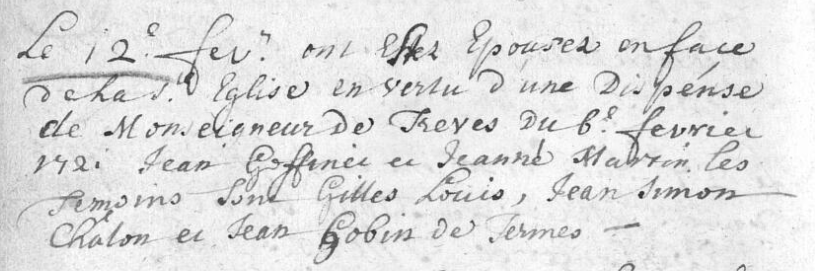 Le 12e fevr. ont Estez Epousez en face
de La Ste Eglise en vertu d'une Dispense
de Monseigneur de Treves Du 6e fevrier
1721 Jean Goffinei et Jeanne Martin les
Temoins sont Gilles Louis, Jean Simon
Châlon et Jean Gobin de Termes —